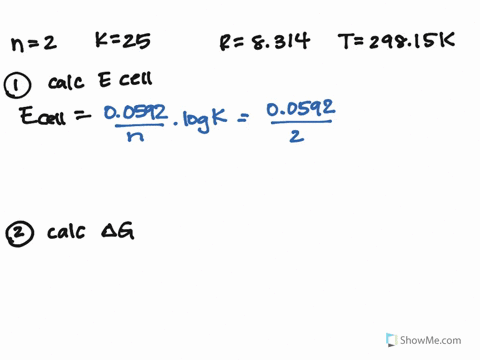 n=2 K=25 R=8.314 T=298.15K
① calc E cell
Ecell = 0.0592/n . log K = 0.0592/2
② calc ΔG
ShowMe.com